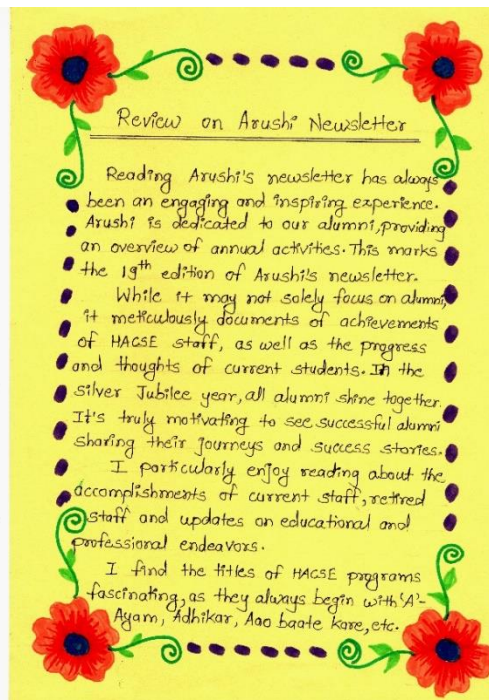 Review on Arushi Newsletter
Reading Arushi's newsletter has always
been an engaging and inspiring experience.
Arushi is dedicated to our alumni, providing
an overview of annual activities. This marks
the 19th edition of Arushi's newsletter.
While it may not solely focus on alumni,
it meticulously documents of achievements
of HACSE staff, as well as the progress
and thoughts of current students. In the
silver Jubilee year, all alumni shine together.
It's truly motivating to see successful alumni
sharing their journeys and success stories.
I particularly enjoy reading about the
accomplishments of current staff, retired
staff and updates on educational and
professional endeavors.
I find the titles of HACSE programs
fascinating, as they always begin with 'A'-
Ayam, Adhikar, Aao baate kare, etc.